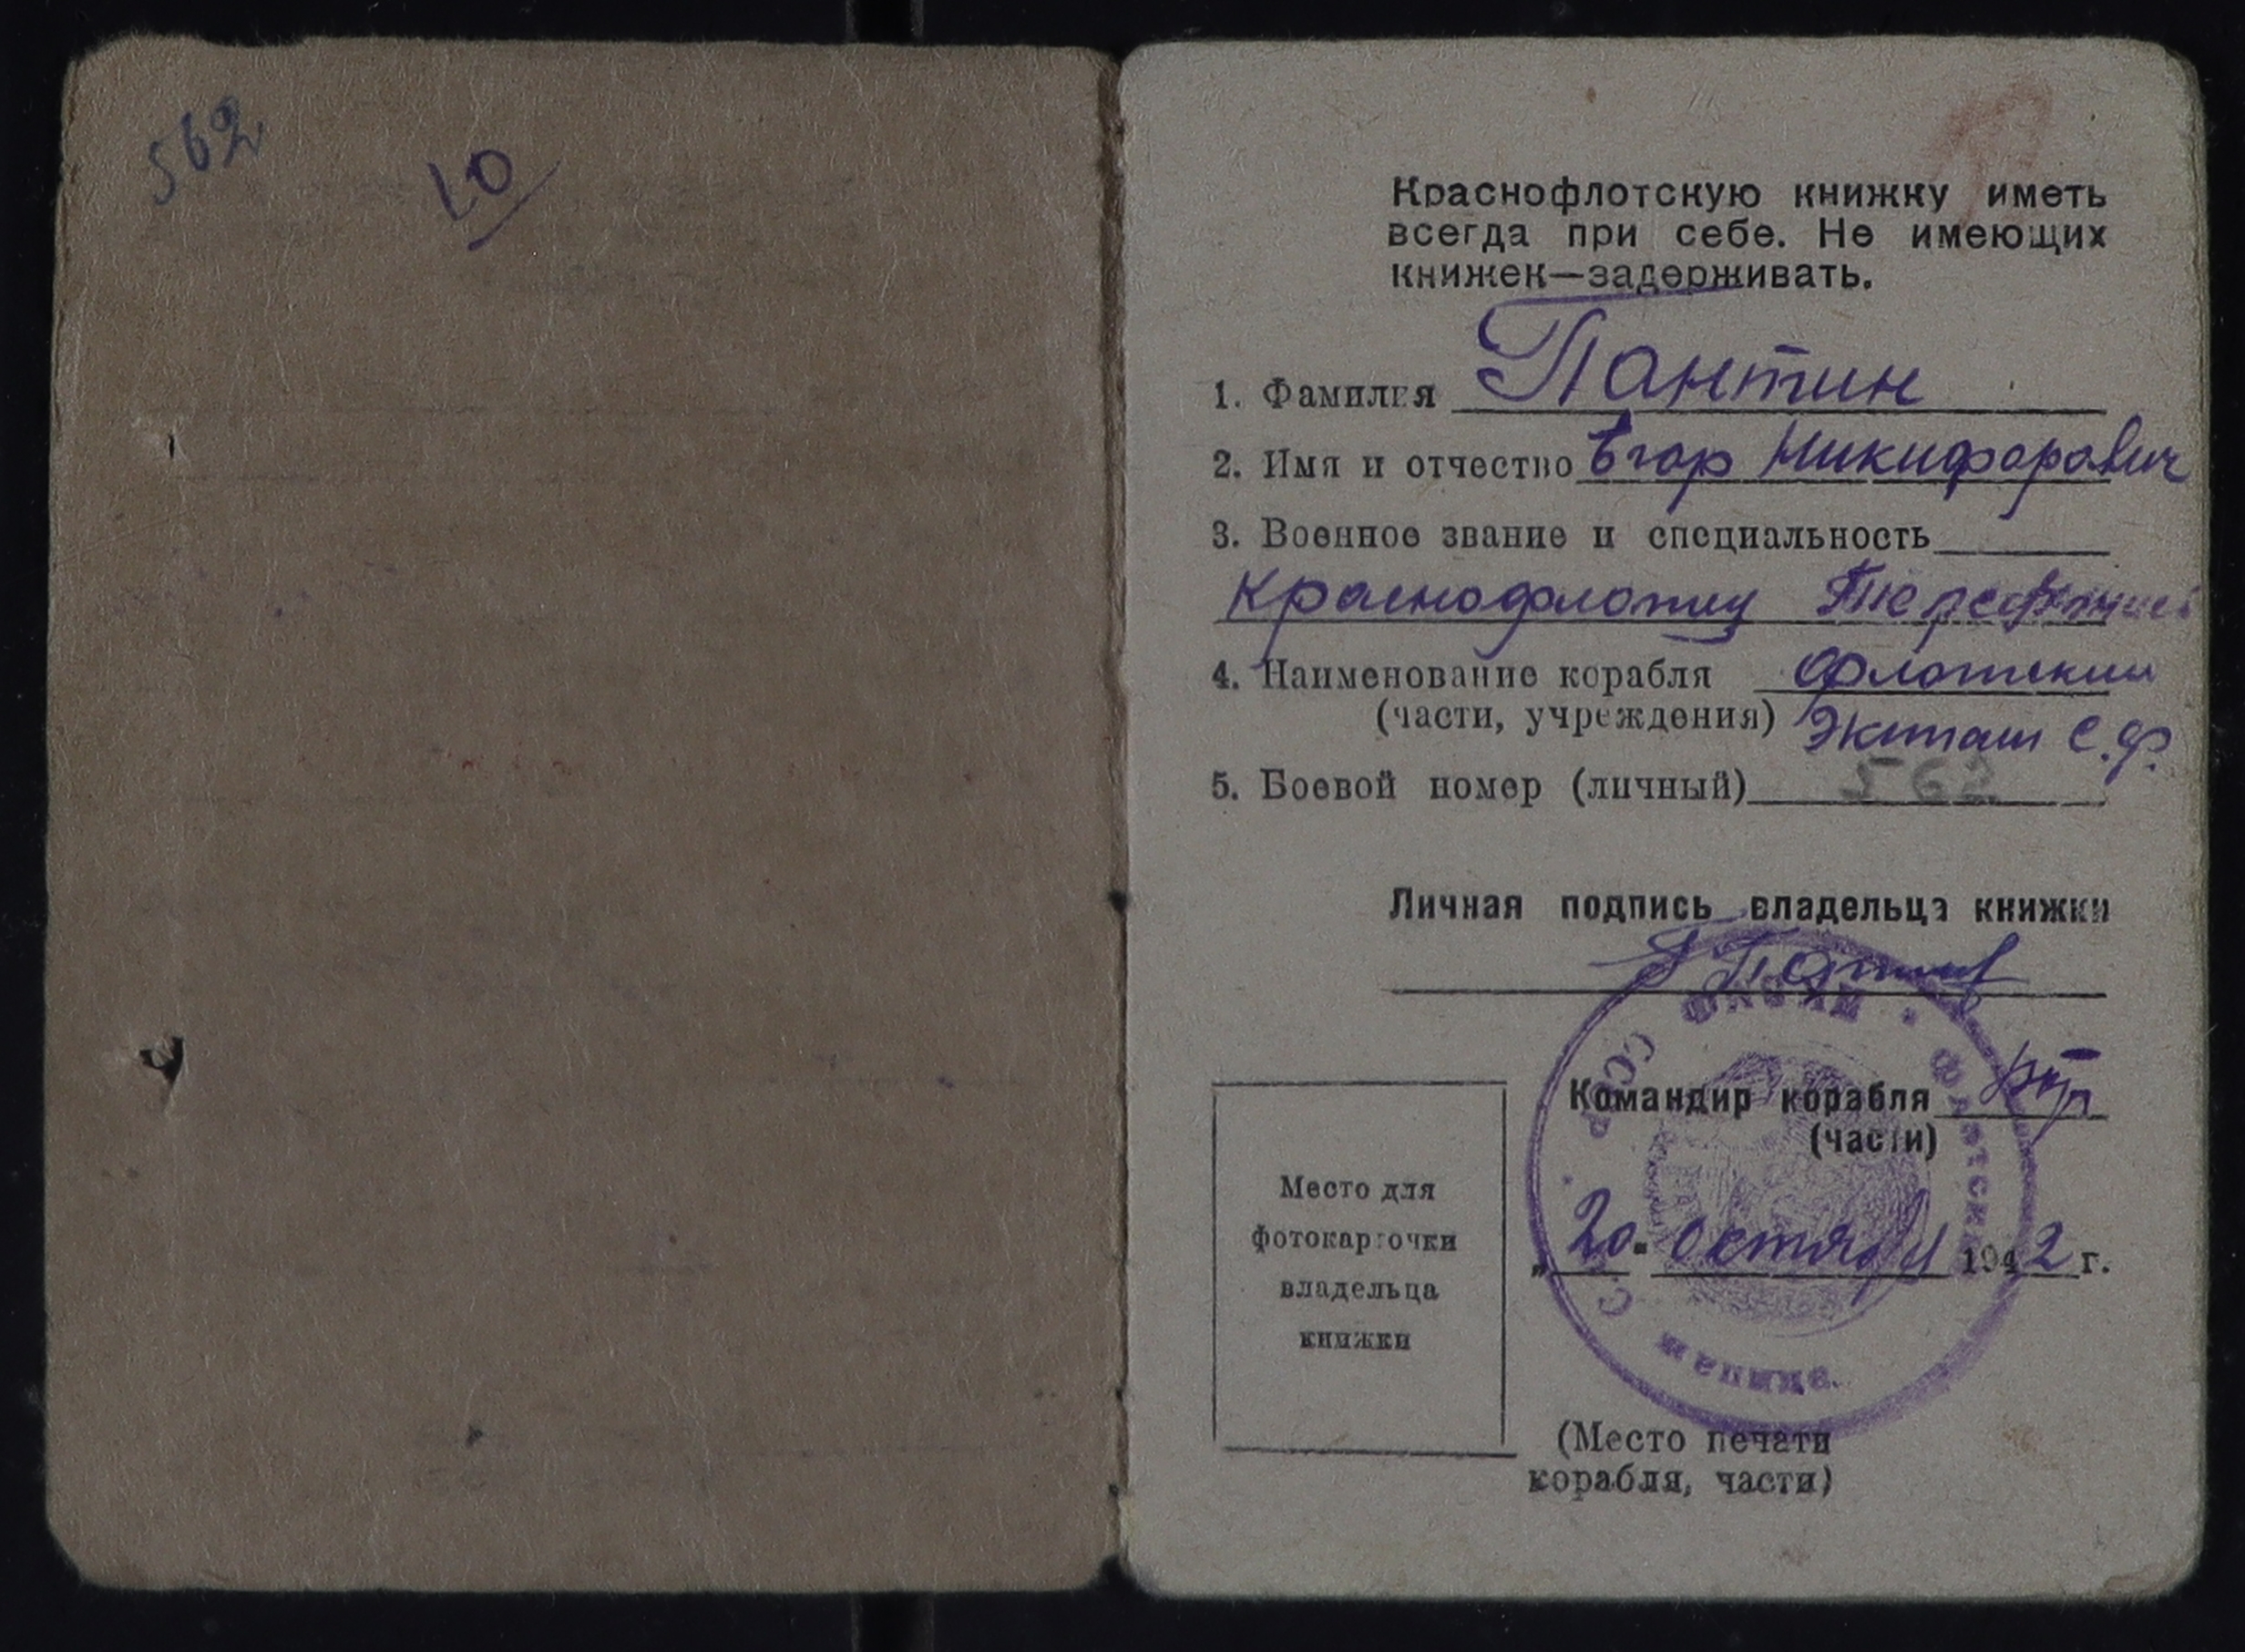 562
10
Краснофлотскую книжку иметь
всегда при себе. Не имеющих
книжек—задерживать.
1. Фамилия Пантин
2. Имя и отчество Егор Никифорович
3. Военное звание и специальность
Краснофлотец
4. Наименование корабля Флотский
(части, учреждения) Экипаж С.Ф.
5. Боевой номер (личный) 562
Личная подпись владельца книжки
Командир корабля
(части)
„20" октября 1942 г.
Место для
фотокарточки
владельца
книжки
(Место печати
корабля, части)